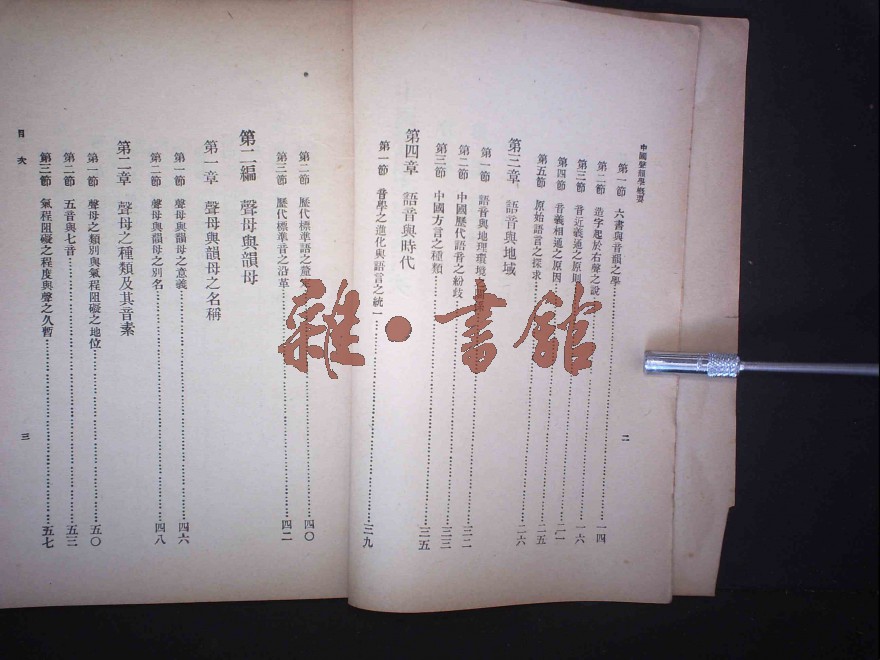 中國聲韻學概要
第一節 六書與音韻之學……一四
第二節 造字起於右聲之說……一六
第三節 音近義通之原則……二一
第四節 音義相通之原因……二五
第五節 原始語言之探求……二六
第三章 語音與地域
第一節 語音與地理環境
第二節 中國歷代語音之紛歧……三二
第三節 中國方言之種類……三三
第四章 語音與時代……三五
第一節 音學之進化與語言之統一……三九
二
第二節 歷代標準語之……四〇
第三節 歷代標準音之沿革……四二
第二編 聲母與韻母
第一章 聲母與韻母之名稱
第一節 聲母與韻母之意義……四六
第二節 聲母與韻母之別名……四八
第二章 聲母之種類及其音素
第一節 聲母之類別與氣程阻礙之地位……五〇
第二節 五音與七音……五三
第三節 氣程阻礙之程度與聲之久暫……五七
目次
三
雜·書館